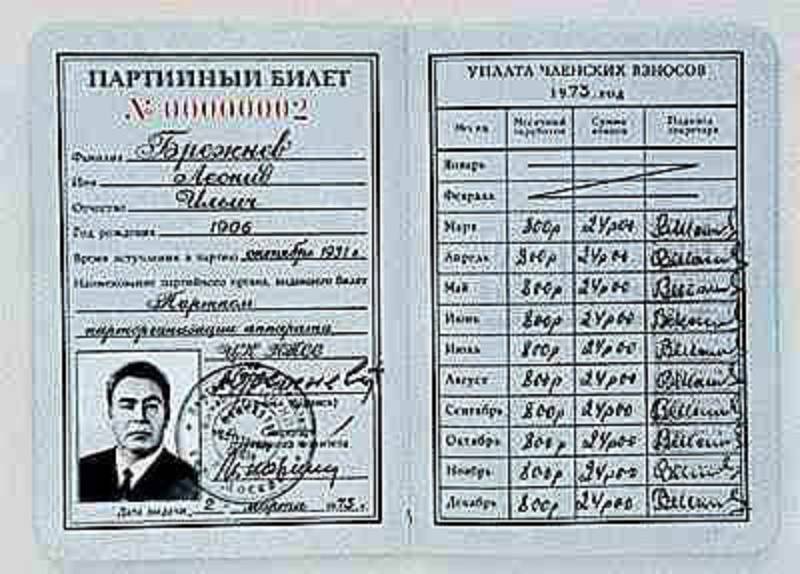 ПАРТИЙНЫЙ БИЛЕТ
№ 00000002
Фамилия Брежнев
Имя Леонид
Отчество Ильич
Год рождения 1906
Время вступления в партию октябрь 1931 г.
Наименование партийного органа, выдавшего билет
Партком
парторганизации аппарата
ЦК КПСС
Дата выдачи 2 марта 1973 г.
УПЛАТА ЧЛЕНСКИХ ВЗНОСОВ
1973 год
Месяц Месячный заработок Сумма взносов Подпись секретаря
Январь
Февраль
Март 800р 24р00
Апрель 800р 24р00
Май 800р 24р00
Июнь 800р 24р00
Июль 800р 24р00
Август 800р 24р00
Сентябрь 800р 24р00
Октябрь 800р 24р00
Ноябрь 800р 24р00
Декабрь 800р 24р00